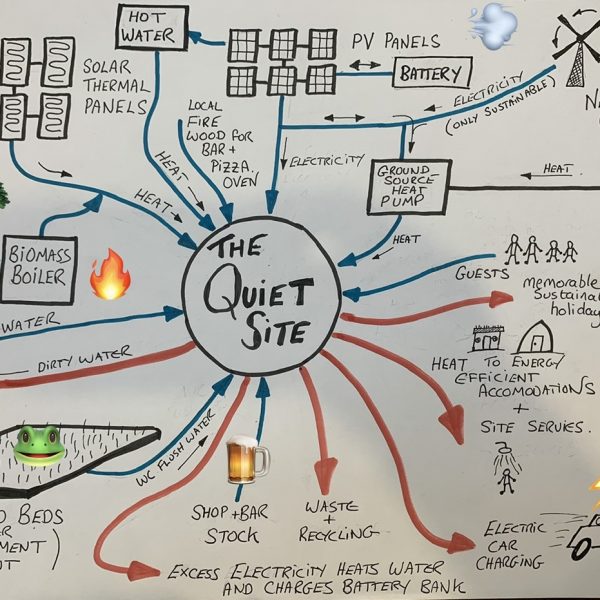 HOT
WATER
PV PANELS
BATTERY
SOLAR
THERMAL
PANELS
LOCAL
FIRE
WOOD FOR
BAR +
PIZZA
OVEN
HEAT
HEAT
ELECTRICITY
ELECTRICITY
(ONLY SUSTAINABLE)
NA
GROUND
SOURCE
HEAT
PUMP
HEAT
HEAT
BIOMASS
BOILER
THE
QUIET
SITE
GUESTS
memorable
Sustaina
holiday
WATER
DIRTY WATER
HEAT TO ENERGY
EFFICIENT
ACCOMODATIONS
+
SITE SERVICES.
WC FLUSH WATER
D BEDS
ER
MENT)
UT
SHOP + BAR
STOCK
WASTE
+
RECYCLING
ELECTRIC
CAR
CHARGING
EXCESS ELECTRICITY HEATS WATER
AND CHARGES BATTERY BANK